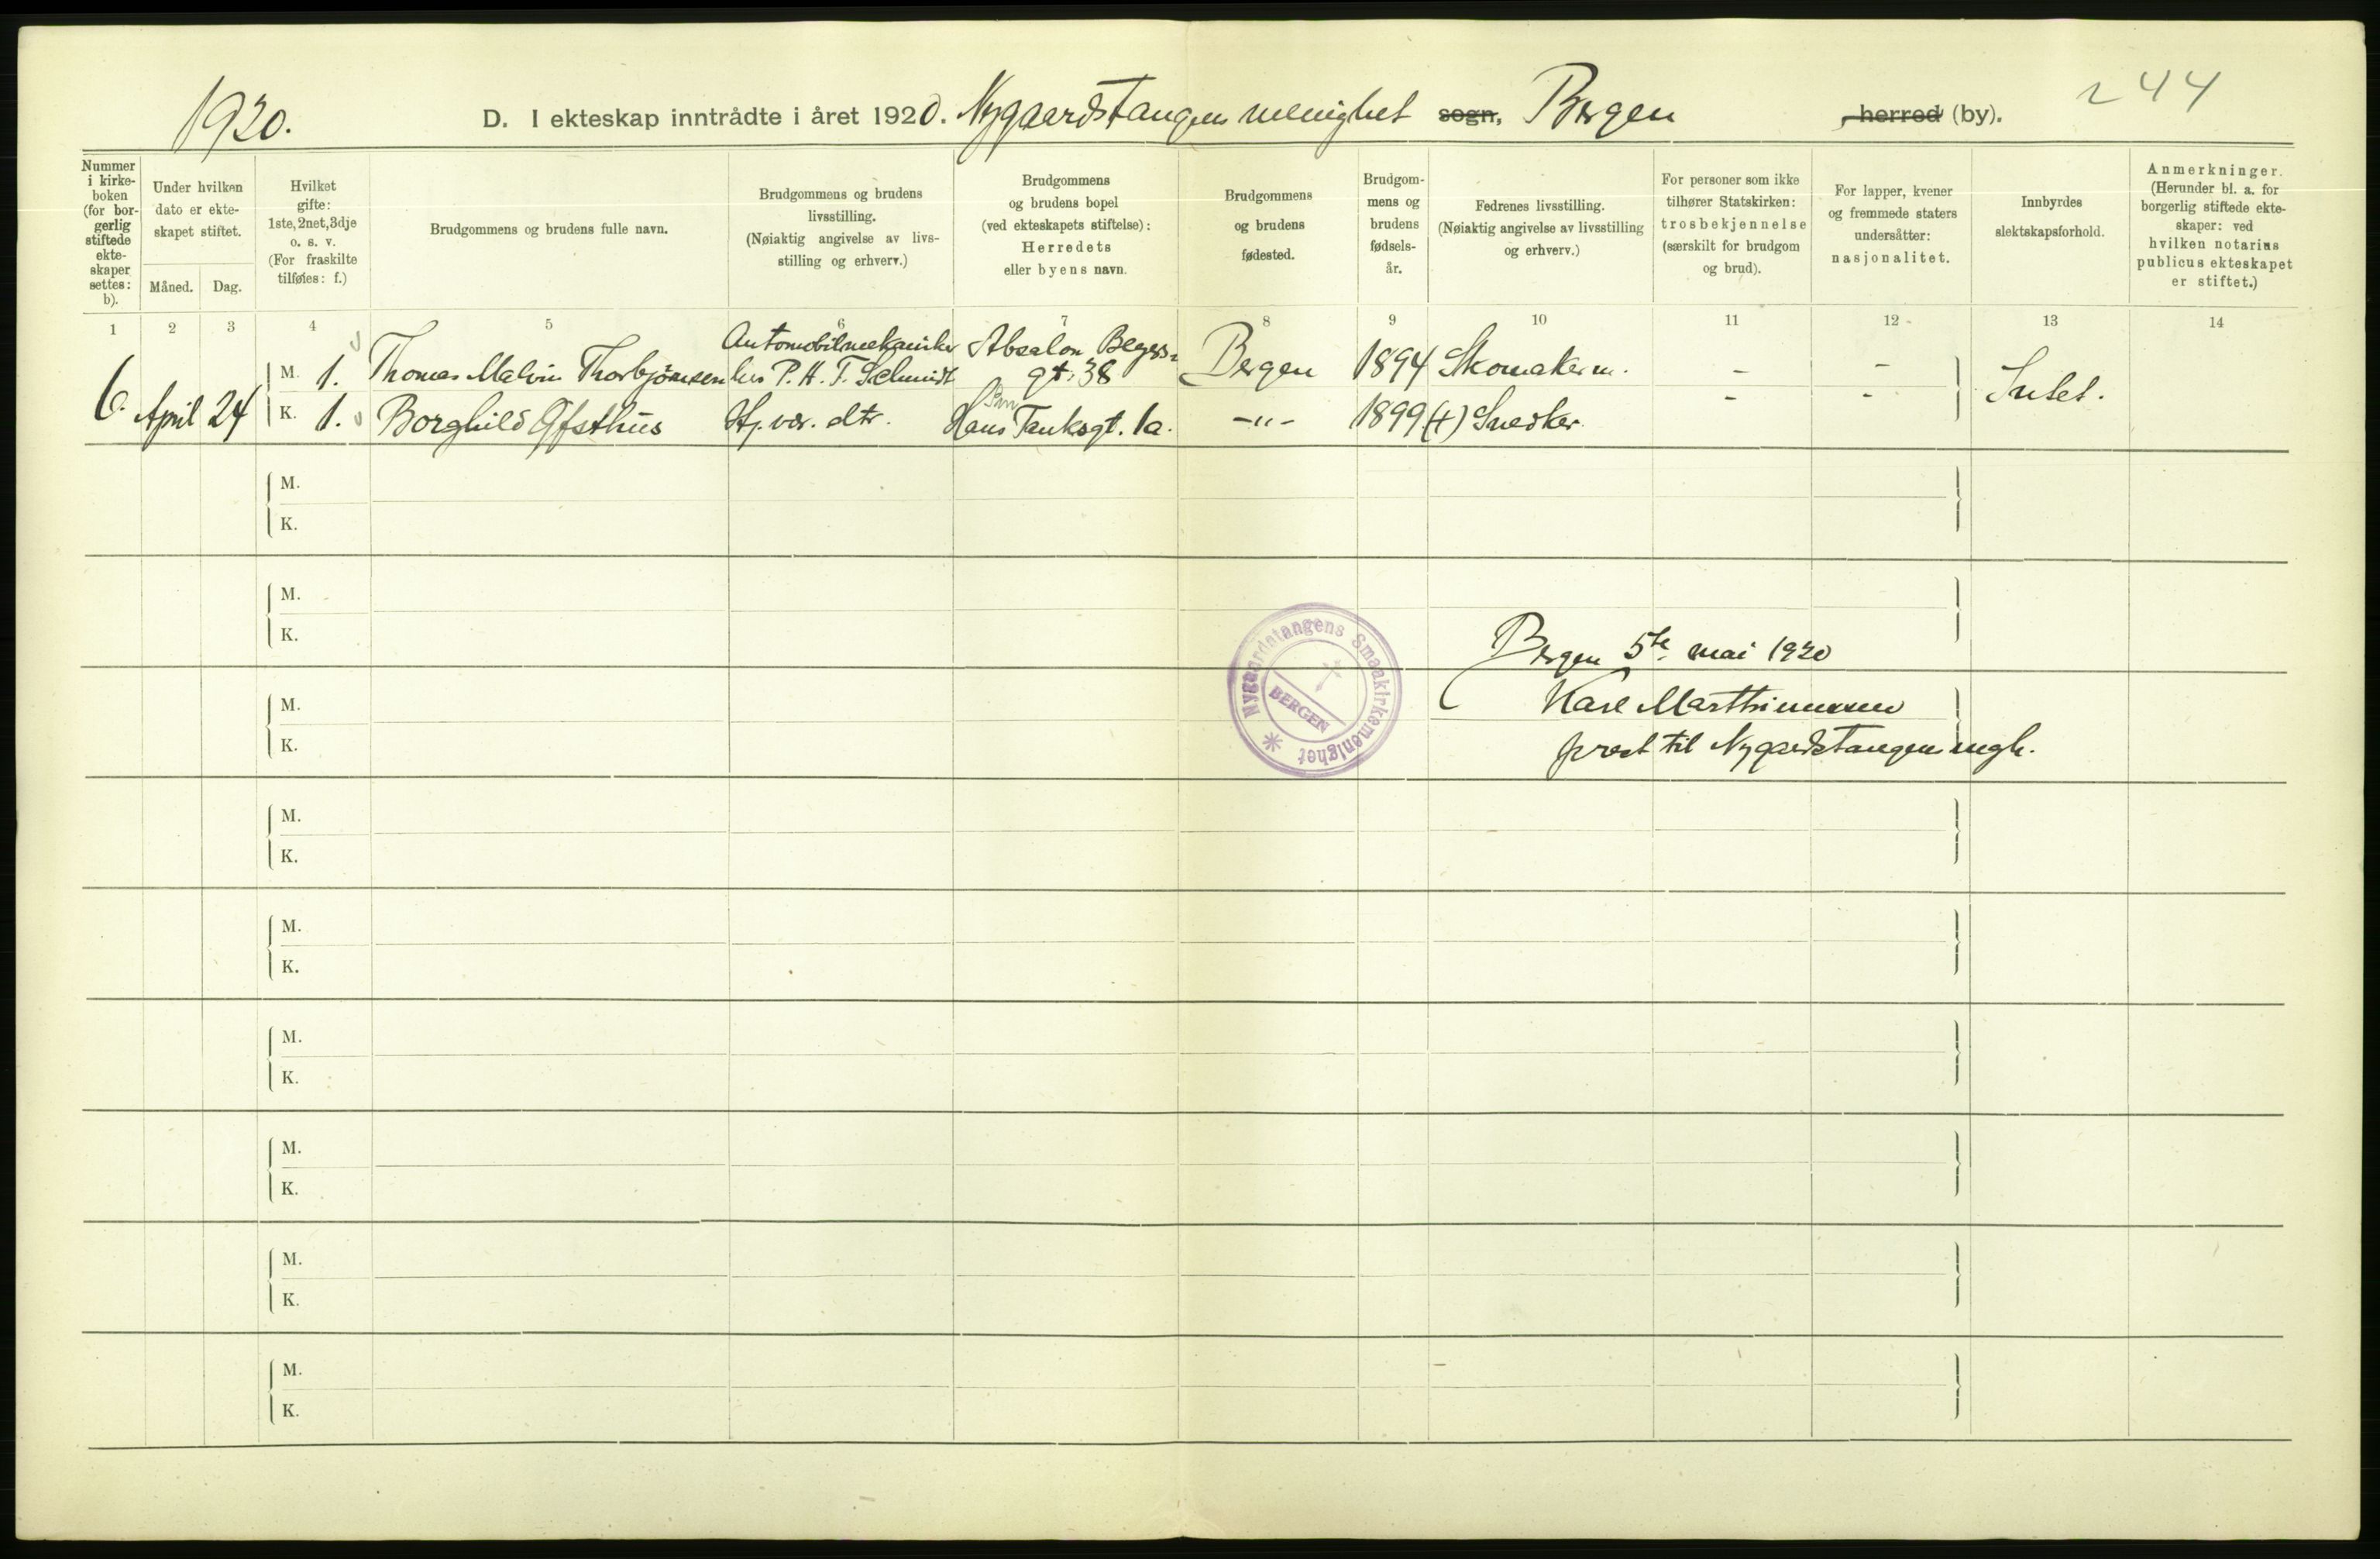 1920.
D. I ekteskap inntrådte i året 1920. Nygaardstangen menighet sogn, Bergen , herred (by).
244
Nummer i kirke- boken (for bor- gerlig stiftede ekte- skaper settes: b).
Under hvilken dato er ekte- skapet stiftet.
Måned. Dag.
Hvilket gifte: 1ste, 2net, 3dje o. s. v. (For fraskilte tilføies: f.)
Brudgommens og brudens fulle navn.
Brudgommens og brudens livsstilling. (Nøiaktig angivelse av livs- stilling og erhverv.)
Brudgommens og brudens bopel (ved ekteskapets stiftelse): Herredets eller byens navn.
Brudgommens og brudens fødested.
Brudgom- mens og brudens fødsels- år.
Fedrenes livsstilling. (Nøiaktig angivelse av livsstilling og erhverv.)
For personer som ikke tilhører Statskirken: trosbekjennelse (særskilt for brudgom og brud).
For lapper, kvener og fremmede staters undersåtter: nasjonalitet.
Innbyrdes slektskapsforhold.
Anmerkninger. (Herunder bl. a. for borgerlig stiftede ekte- skaper: ved hvilken notarius publicus ekteskapet er stiftet.)
1 2 3 4 5 6 7 8 9 10 11 12 13 14
Automobilmekaniker Absalon Beyers-
M. 1. Thomas Malvin Thorbjörnsen hos P. H. T. Schmidt gt. 38 Bergen 1894 Skomakerm. - -
6. April 24 K. 1. Borghild Ofsthus Hj. vær. dtr. Hans Tanksgt. 1a. -"- 1899 (+) Snedker. - - Intet.
M.
K.
M.
K.
Bergen 5te mai 1920
M. Karl Marthinussen
K. prest til Nygaardstangen mgh.
Nygaardstangens Smaakirkemenighet
BERGEN
M.
K.
M.
K.
M.
K.
M.
K.
M.
K.
M.
K.